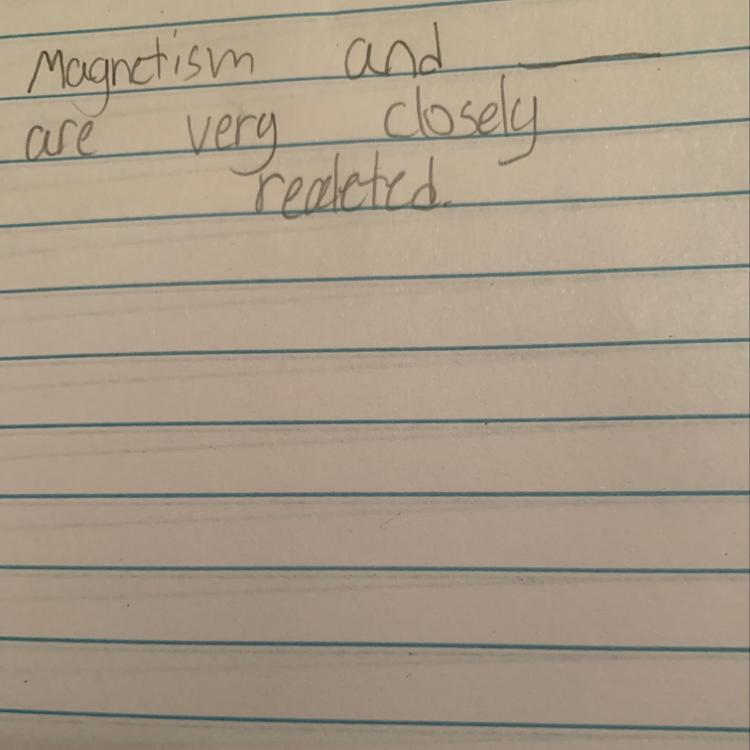 Magnetism and ______
are very closely
realeted.